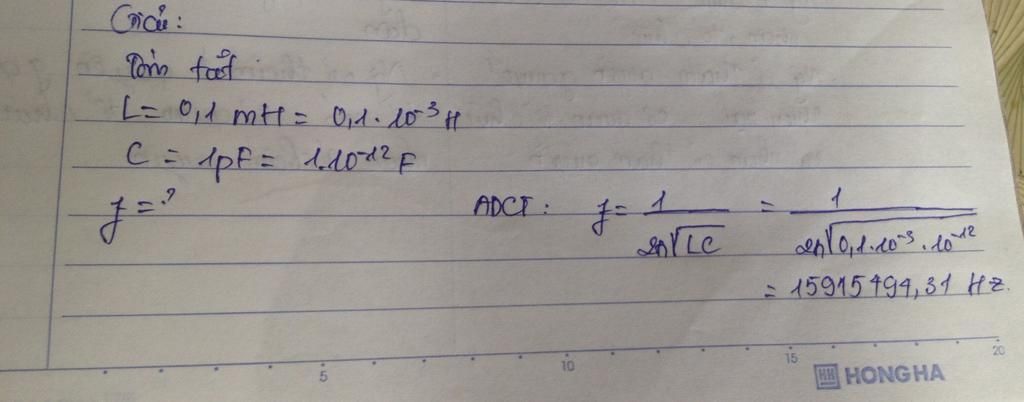 Giải:
Tóm tắt
L = 0,1 mH = 0,1.10⁻³ H
C = 1pF = 1.10⁻¹² F
f = ?
ADCT: f = 1/2π√LC = 1/2π√0,1.10⁻³.10⁻¹²
= 15915494,31 Hz.
5 10 15 20
HH HONG HA